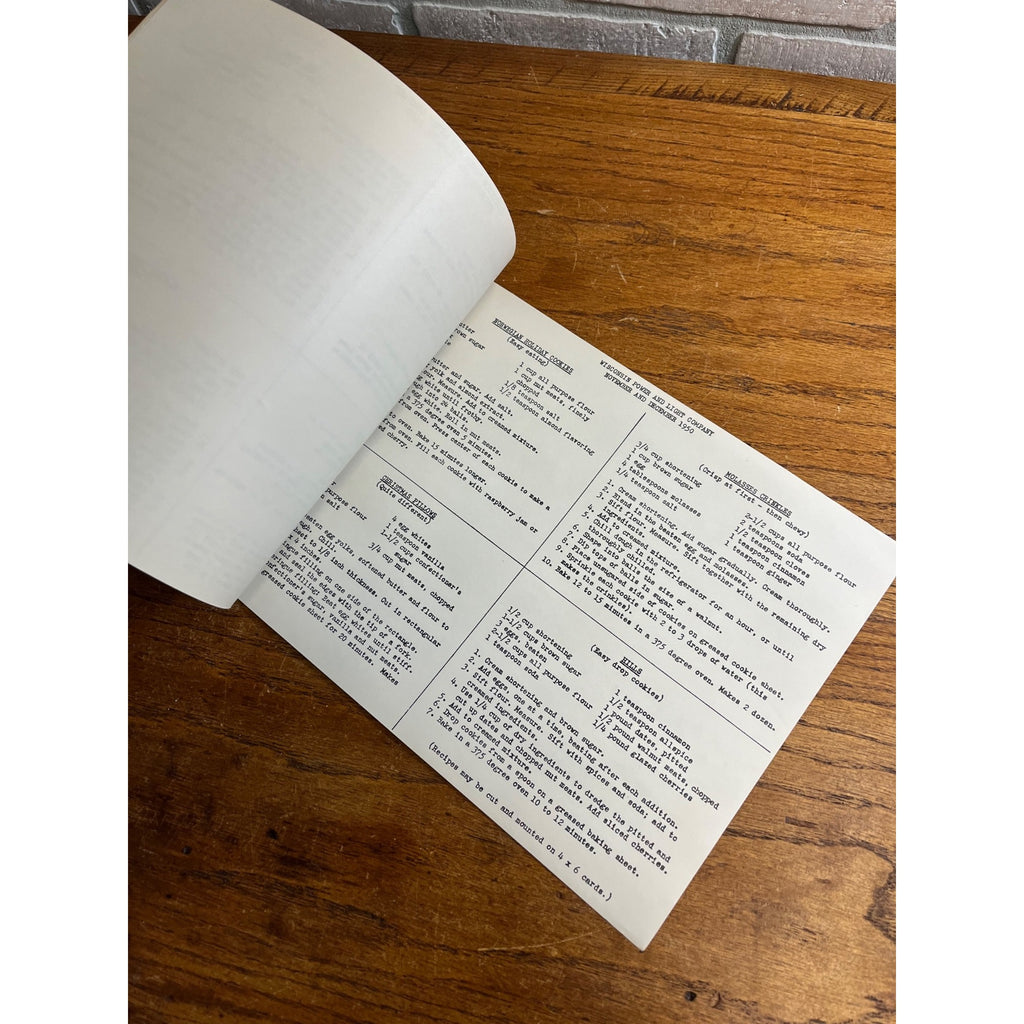 WISCONSIN POWER AND LIGHT COMPANY
NOVEMBER AND DECEMBER 1950
NORWEGIAN HOLIDAY COOKIES
(Easy eating)
sugar
1 cup all purpose flour
1 cup nut meats, finely
chopped
1/8 teaspoon salt
1/2 teaspoon almond flavoring
and sugar. Add salt.
yolk and almond extract.
Measure. Add to creamed mixture.
white until frothy.
into 26 balls.
egg white. Roll in nut meats.
375 degree oven 5 minutes.
from oven. Press center of each cookie to make a
to oven. Bake 15 minutes longer.
from oven. Fill each cookie with raspberry jam or
cherry.
MOLASSES CRINKLES
(Crisp at first - then chewy)
3/4 cup shortening
1 cup brown sugar
1 egg
4 tablespoons molasses
1/4 teaspoon salt
2-1/2 cups all purpose flour
2 teaspoons soda
1/2 teaspoon cloves
1 teaspoon cinnamon
1 teaspoon ginger
1. Cream shortening. Add sugar gradually. Cream thoroughly.
2. Blend in the beaten egg and molasses.
3. Sift flour. Measure. Sift together with the remaining dry
ingredients.
4. Add to creamed mixture.
5. Chill dough in the refrigerator for an hour, or until
thoroughly chilled.
6. Shape into balls the size of a walnut.
7. Dip tops of balls in sugar.
8. Place unsugared side of cookies on greased cookie sheet.
9. Sprinkle each cookie with 2 to 3 drops of water (this
makes the crinkles).
10. Bake 12 to 15 minutes in a 375 degree oven. Makes 2 dozen.
CHRISTMAS PILLOWS
(Quite different)
purpose flour
salt
4 egg whites
1 teaspoon vanilla
1-1/2 cups confectioner's
sugar
3/4 cup nut meats, chopped
egg yolks, softened butter and flour to
1/8 inch thickness. Cut in rectangular
x 4 inches.
filling on one side of the rectangle.
and seal the edges with the tip of a fork.
filling: Beat egg whites until stiff.
confectioner's sugar, vanilla and nut meats.
greased cookie sheet for 20 minutes. Makes
HILLS
(Easy drop cookies)
1/2 cup shortening
1-1/2 cups brown sugar
3 eggs, beaten
2-1/2 cups all purpose flour
1 teaspoon soda
1 teaspoon cinnamon
1 teaspoon allspice
1 pound dates, pitted
1/2 pound walnut meats, chopped
1/4 pound glazed cherries
1. Cream shortening and brown sugar.
2. Add eggs, one at a time, beating after each addition.
3. Sift flour. Measure. Sift with spices and soda; add to
creamed ingredients.
4. Use 1/4 cup of dry ingredients to dredge the pitted and
cut up dates and chopped nut meats. Add sliced cherries.
5. Add to creamed mixture.
6. Drop cookies from a spoon on a greased baking sheet.
7. Bake in a 375 degree oven 10 to 12 minutes.
(Recipes may be cut and mounted on 4 x 6 cards.)